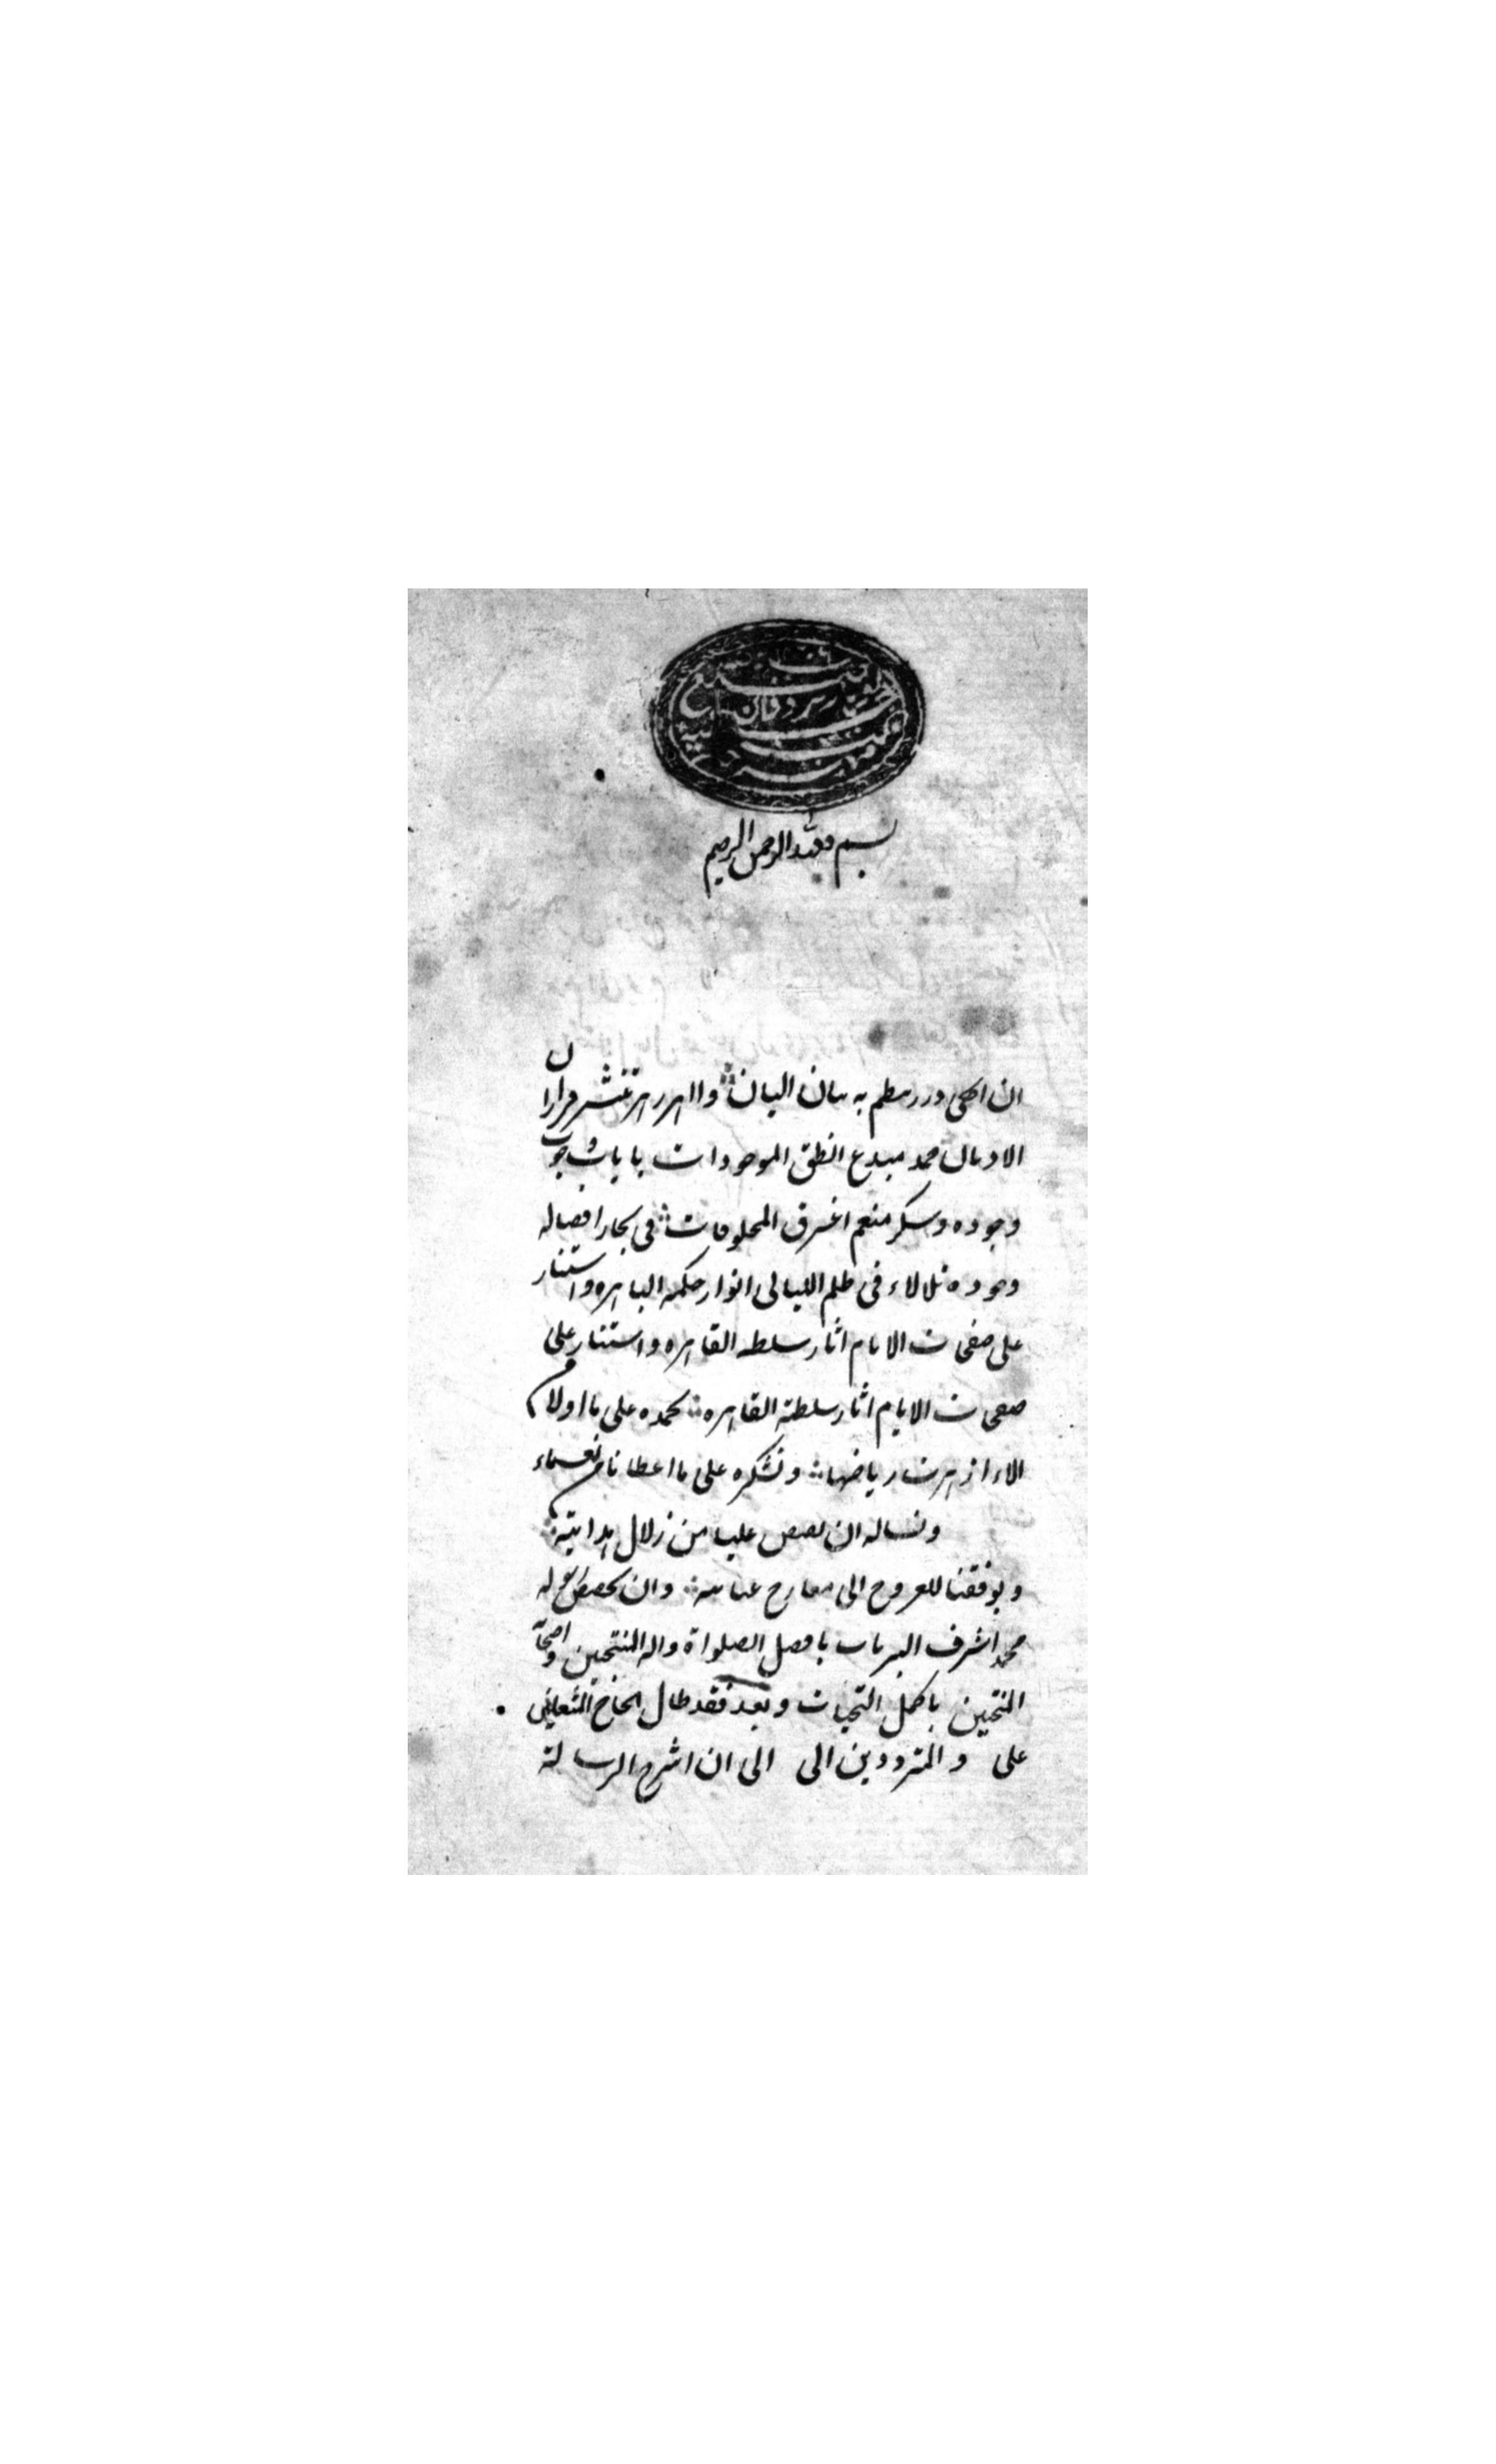 بسم الله الرحمن الرحيم
ان ابهى درر ينظم به بيان البيان وا زهر زهر تنتثر فى اردان
الاذهان حمد مبدع انطق الموجودات بايات وجوب
وجوده وشكر منعم اغرق المخلوقات فى بحار افضاله
وجوده تلالاء فى ظلم الليالى انوار حكمه الباهره واستنار
على صفحات الايام اثار سلطنه القاهره واستنار على
صفحات الايام اثار سلطنته القاهره نحمده على ما اولانا من
الاء ازهرت رياضها ونشكره على ما اعطانا من نعماء
ونساله ان يفيض علينا من زلال هدايته
ويوفقنا للعروج الى معارج عنايته وان يخصص رسوله
محمد اشرف البريات بافضل الصلواة واله المنتجبين واصحابه
المنتجبين باكمل التحيات وبعد فقد طال الحاح المشتغلين
على و المترددين الى الى ان اشرح الرسالة